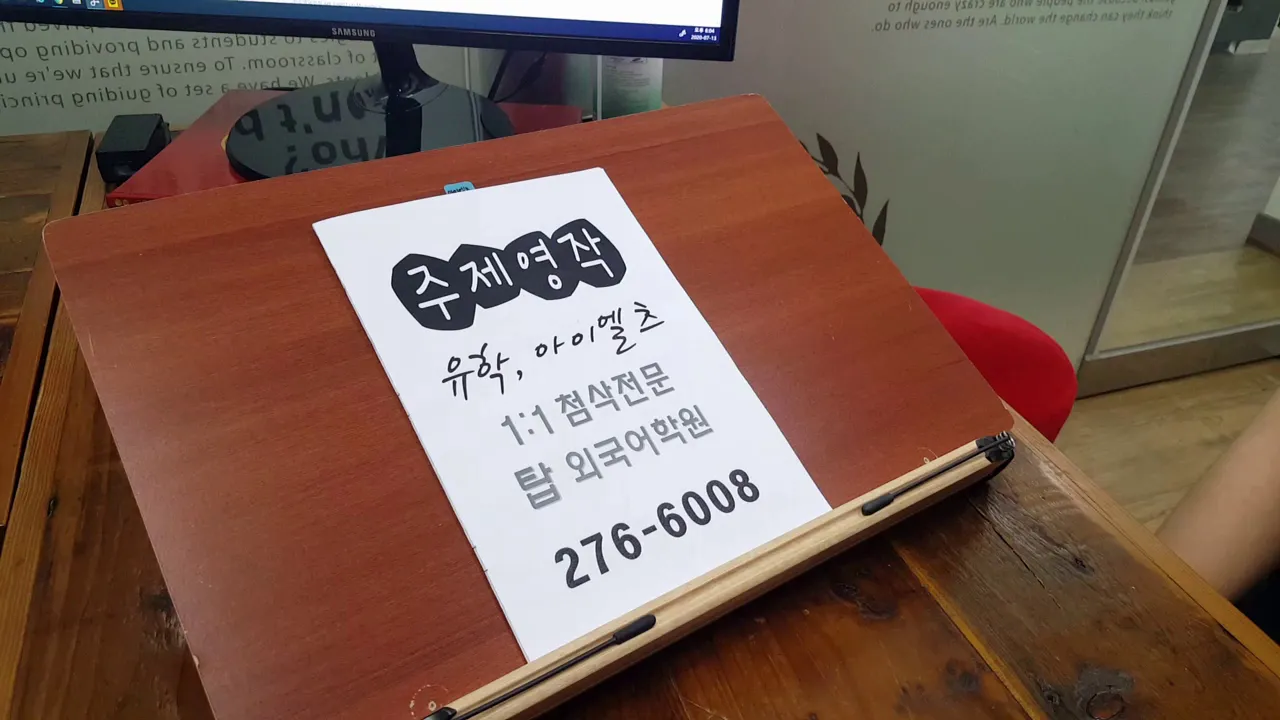 SAMSUNG
오후 6:04
2020-07-13
students and providing
of classroom. To ensure that we're
We have a set of guiding
because the people who are crazy enough to
think they can change the world. Are the ones who do.
주제영작
유학, 아이엘츠
1:1 첨삭전문
탑 외국어학원
276-6008